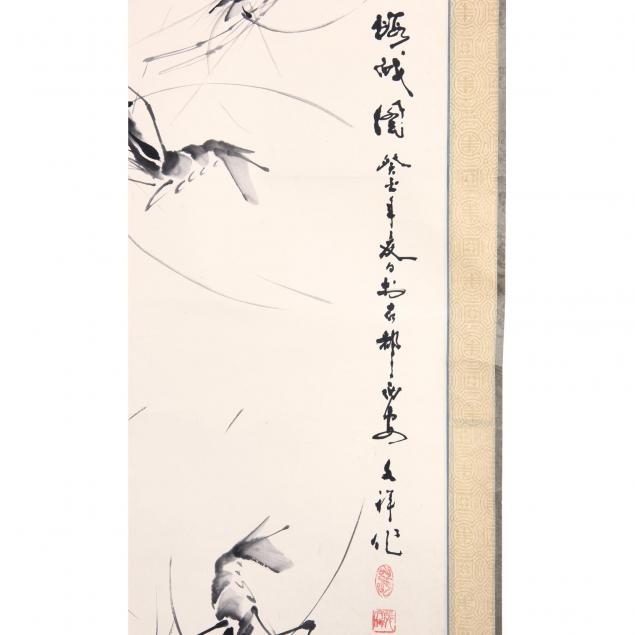 蝦戏圖 癸丑年夏日於古都西安 文祥作